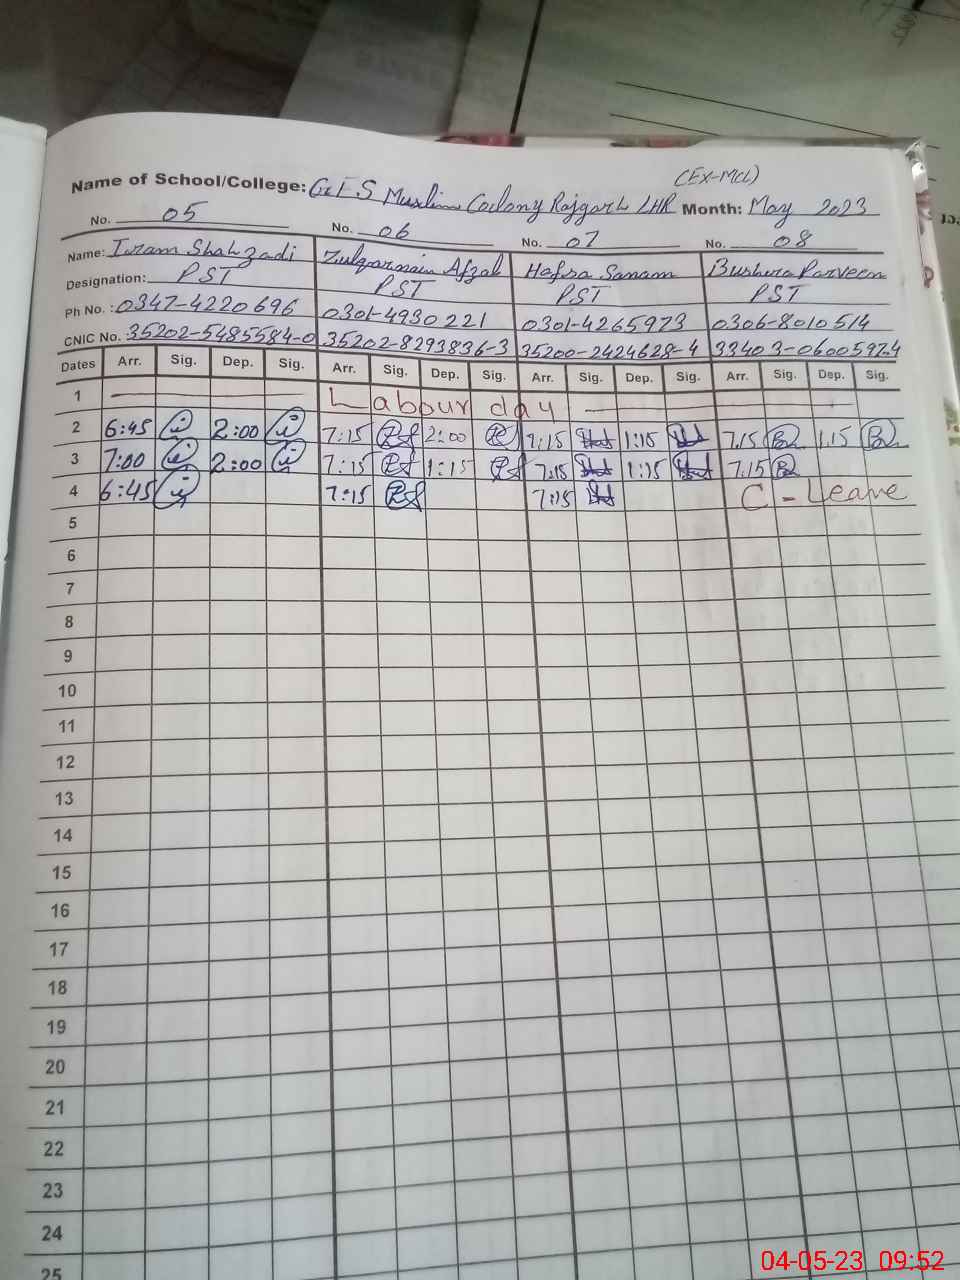 (Ex-MCL)
Name of School/College: GES Muslim Colony Rajgarh LHR Month: May 2023
No. 05 No. 06 No. 07 No. 08
Name: Iram Shahzadi Zulqarnain Afzal Hafsa Sanam Bushera Parveen
Designation: PST PST PST PST
Ph No. : 0347-4220696 0301-4930221 0301-4265973 0306-8010514
CNIC No. 35202-5485584-0 35202-8293836-3 35200-2424628-4 33403-0600597-4
Dates Arr. Sig. Dep. Sig. Arr. Sig. Dep. Sig. Arr. Sig. Dep. Sig. Arr. Sig. Dep. Sig.
1 Labour day
2 6:45 2:00 7:15 2:00 7:15 1:15 7.15 1.15
3 7:00 2:00 7:15 1:15 7:15 1:15 7.15
4 6:45 7:15 7:15 C - Leave
5
6
7
8
9
10
11
12
13
14
15
16
17
18
19
20
21
22
23
24
25
04-05-23 09:52